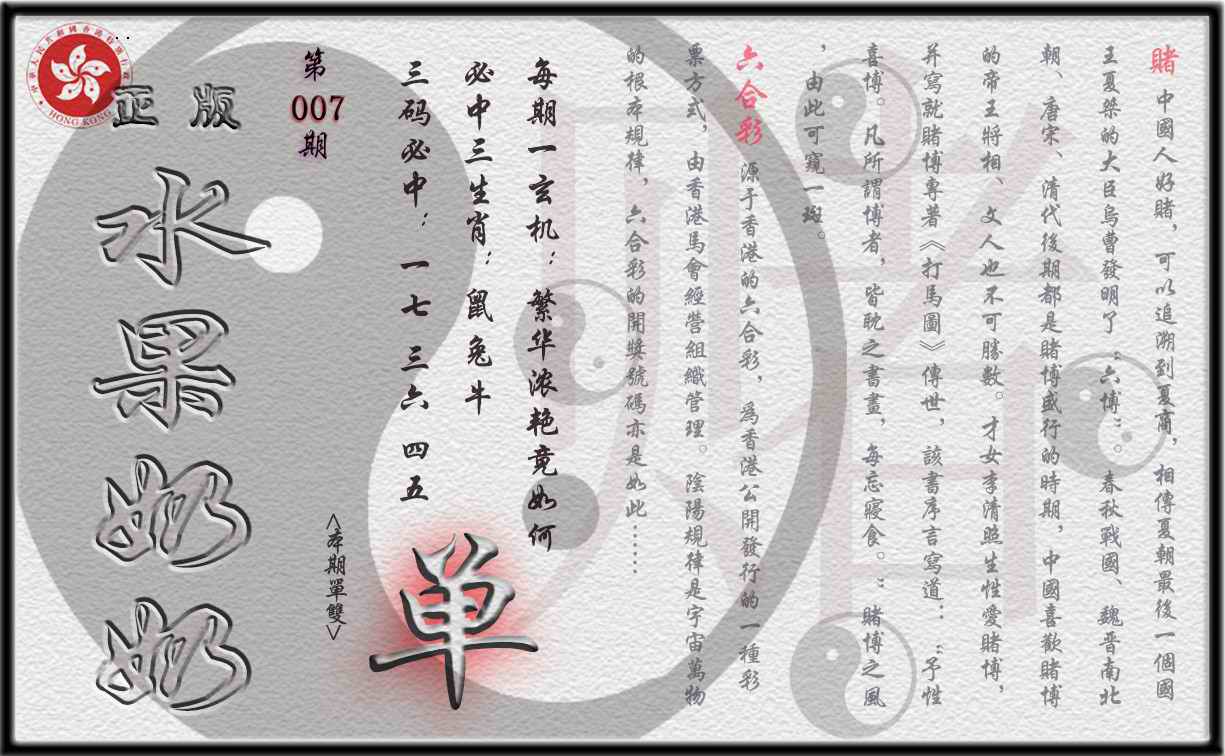 賭 中國人好賭，可以追溯到夏商，相傳夏朝最後一個國
王夏桀的大臣烏曹發明了“六博”。春秋戰國、魏晋南北
朝、唐宋、清代後期都是賭博盛行的時期，中國喜歡賭博
的帝王將相、文人也不可勝數。才女李清照生性愛賭博，
并寫就賭博專著《打馬圖》傳世，該書序言寫道：“予性
喜博。凡所謂博者，皆耽之書畫，每忘寢食。”賭博之風
，由此可窺一斑。
六合彩 源于香港的六合彩，爲香港公開發行的一種彩
票方式，由香港馬會經營組織管理。陰陽規律是宇宙萬物
的根本規律，六合彩的開獎號碼亦是如此……
每期一玄机：繁华浓艳竟如何
必中三生肖：鼠兔牛
三码必中：一七 三六 四五
單
<本期單雙>
第
007
期
正版
水果奶奶
HONG KONG
賭